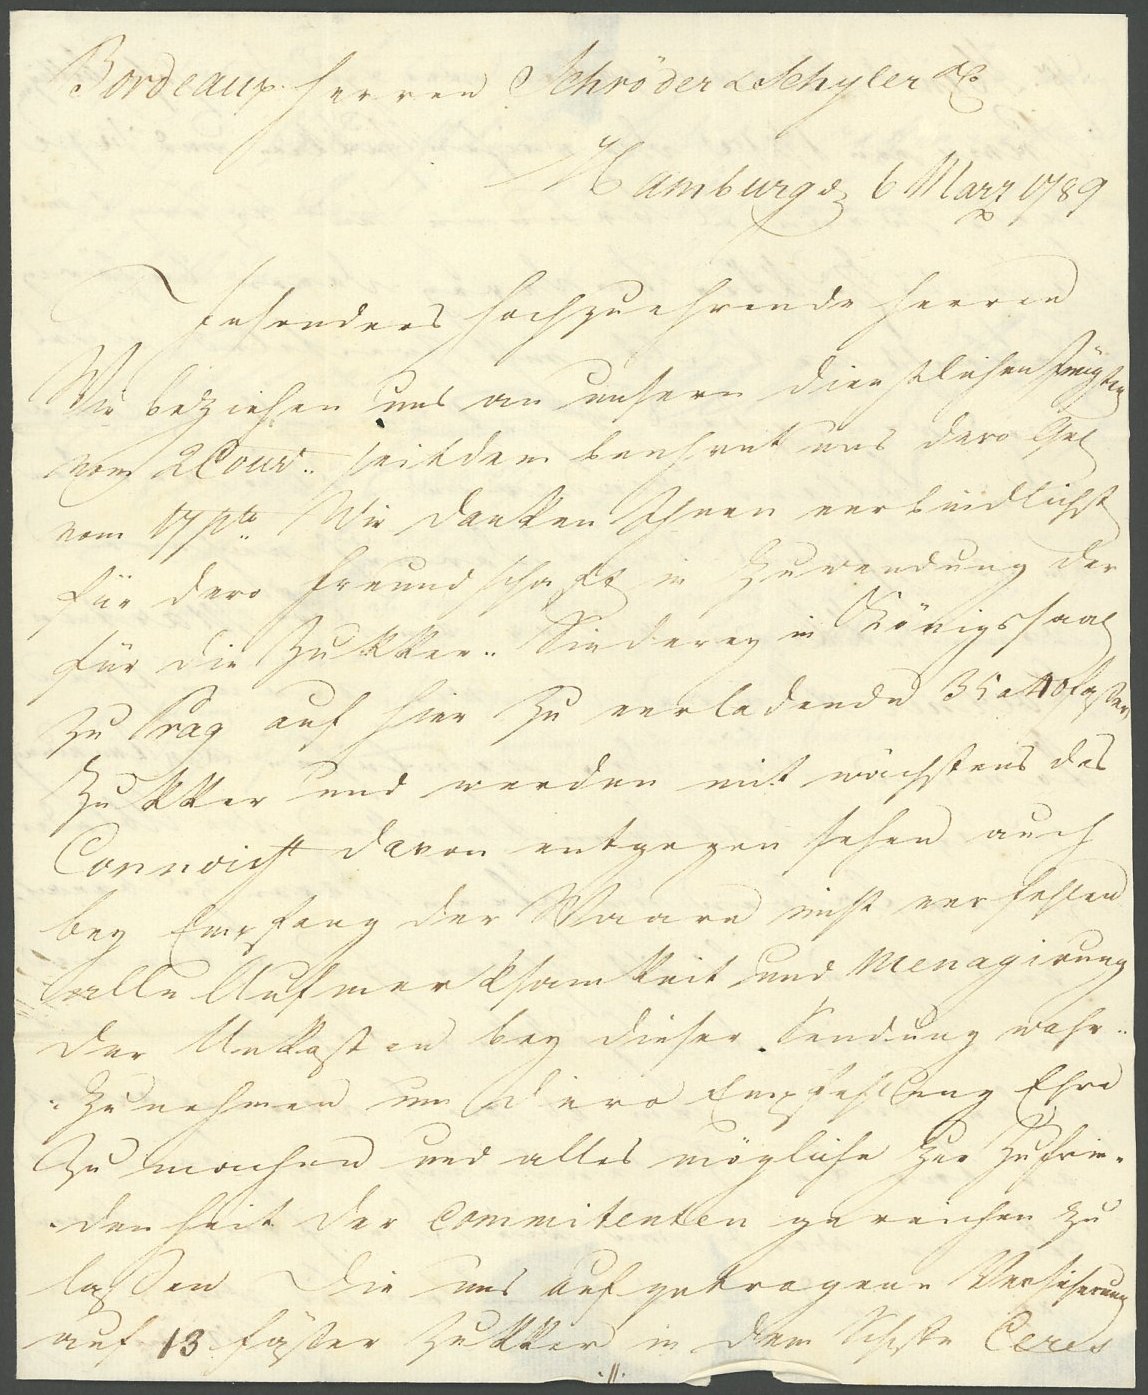 Bordeaux. Herren Schröder & Schyler &C
Hamburg d 6 Marz 1789
Insonders Hochzuehrende Herren
Wir beziehen uns an unsern dienstlichen Jüngsten
vom 2 Cour.. seitdem beehret uns dero Gel
vom 17 pto.. Wir danken Ihnen verbindlichst
für dero Freundschaft in Zuwendung der
für die Zukker.. Siederey in Königssaal
zu Prag auf hier zu verladende 35 a 40 Fässer
Zukker und werden mit nächstens das
Connoist davon entgegen sehen auch
bey Empfang der Waare nicht verfehlen
alle Aufmerksamkeit und Menagirung
der Unkosten bey dieser Sendung wahr..
zunehmen um dero Empfehlung Ehre
zu machen und alles mögliche zur Zufrie-
-denheit der Commitenten gereichen zu
lassen Die uns aufgetragene Versicherung
auf 13 Fässer Zukker in dem Schiffe Ceres
.//.